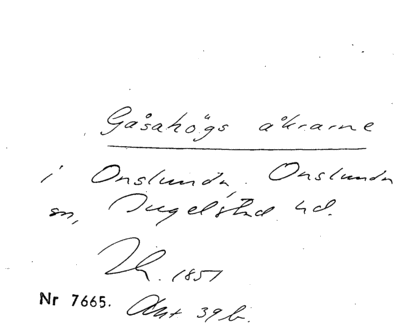 Gåsahögs åkrarne
i Onslunda, Onslunda
sn, Ingelstad hd.
1851
Nr 7665. Akt 39 b.